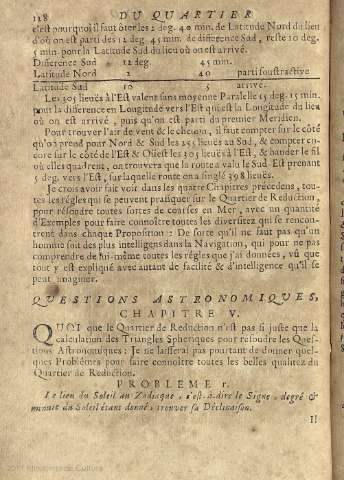 128 DU QUARTIER
c'est pourquoi il faut ôter les 2 deg. 40 min. de Latitude Nord du lieu
d'où on est parti des 12 deg. 45 min. de difference Sud, reste 10 deg.
5 min. pour la Latitude Sud du lieu où on est arrivé.
Difference Sud 12 deg. 45 min.
Latitude Nord 2 40 parti soustractive
Latitude Sud 10 5 arrivé.
Les 305 lieuës à l'Est valent sans moyenne Paralelle 15 deg. 15 min.
pour la difference en Longitude vers l'Est qui est la Longitude du lieu
où on est arrivé, puis qu'on est parti du premier Meridien.
Pour trouver l'air de vent & le chemin, il faut compter sur le côté
qu'on prend pour Nord & Sud les 255 lieuës au Sud, & compter en-
core sur le côté de l'Est & Oüest les 305 lieuës l'Est, & bander le fil
où elles quadrent, on trouvera que la route a valu le Sud Est prenant
5 deg. vers l'Est, sur laquelle route on a singlé 398 lieuës.
Je crois avoir fait voir dans les quatre Chapitres précedens, tou-
tes les régles qui se peuvent pratiquer sur le Quartier de Reduction,
pour résoudre toutes sortes de courses en Mer, avec un quantité
d'Exemples pour faire connoître toutes les diversitez qui se rencon-
trent dans chaque Proposition: De sorte qu'il ne faut pas qu'un
homme soit des plus intelligens dans la Navigation, qui pour ne pas
comprendre de lui-même toutes les régles que j'ai données, vû que
tout y est expliqué avec autant de facilité & d'intelligence qu'il se
peut imaginer.
QUESTIONS ASTRONOMIQUES,
CHAPITRE V.
QUOI que le Quartier de Reduction n'est pas si juste que la
calculation des Triangles Spheriques pour resoudre les Ques-
tions Astronomiques: Je ne laisserai pas pourtant de donner quel-
ques Problémes pour faire connoître toutes les belles qualitez du
Quartier de Reduction.
PROBLEME 1.
Le lieu du Soleil au Zodiaque, c'est-à-dire le Signe, degré &
minute du Soleil étant donné, trouver sa Déclinaison.
Il
Ministerio de Cultura